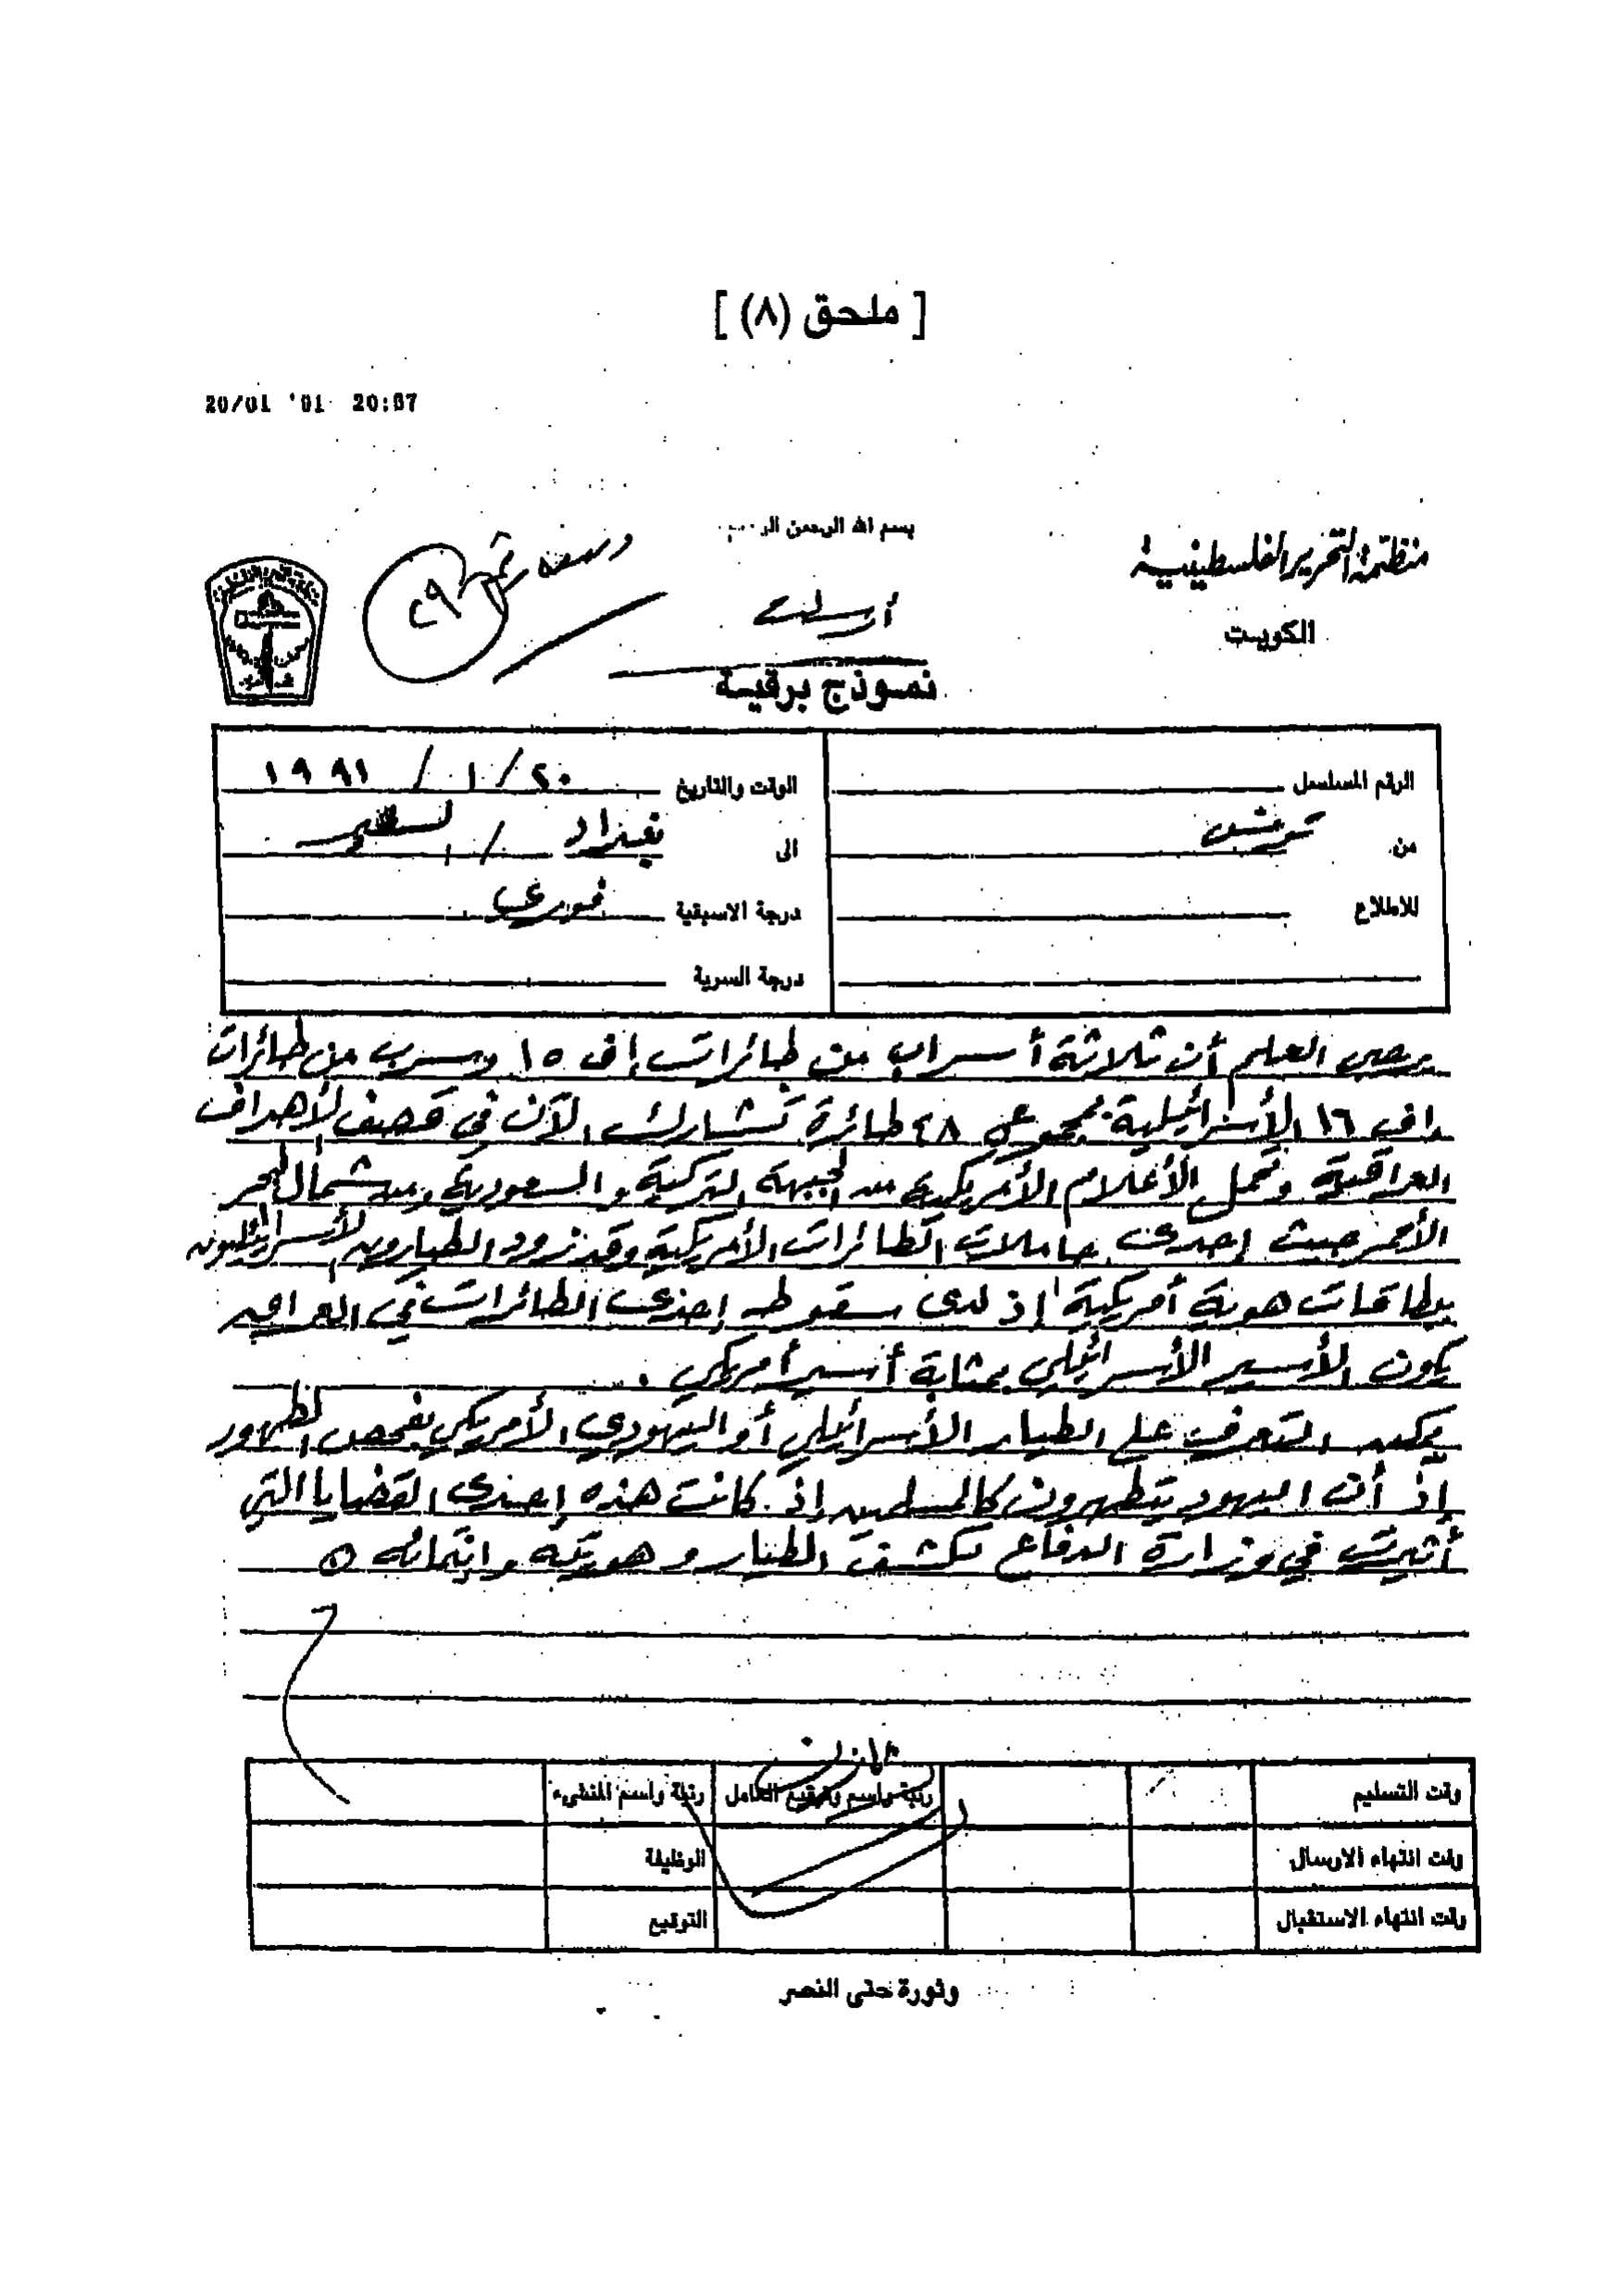 [ ملحق (٨) ]
20/01 '91 20:57
بسم الله الرحمن الرحيم
منظمة التحرير الفلسطينية
الكويت
أرسلت
٢٩
نموذج برقية
الرقم المسلسل
الوقت والتاريخ ٢٠/ ١ / ١٩٩١
من تونس
الى بغداد / السفير
للاطلاع
درجة الاسبقية فوري
درجة السرية
يرجى العلم أن ثلاثة أسراب من طائرات إف ١٥ وسرب من طائرات
إف ١٦ الأسرائيلية بمجموعن ٤٨ طائرة تشارك الآن في قصف الأهداف
العراقية وتحمل الأعلام الأمريكية من الجبهة التركية والسعودية ومن شمال البحر
الأحمر حيث إحدى حاملات الطائرات الأمريكية وقد زود الطيارون الأسرائيليون
بطاقات هوية أمريكية إذ لدى سقوط إحدى الطائرات في العراق
يكون الأسير الأسرائيلي بمثابة أسير أمريكي .
يمكن التعرف على الطيار الأسرائيلي أو اليهودي الأمريكي بفحص الطهور
إذ أن اليهود يتطهرون كالمسلمين إذ كانت هذه إحدى القضايا التي
أثيرت في وزارة الدفاع لكشف الطيار وهويته وانتمائه
وقت التسليم
رتبة واسم وتوقيع العامل
رتبة واسم المنشىء
وقت انتهاء الارسال
الوظيفة
وقت انتهاء الاستقبال
التوقيع
وثورة حتى النصر